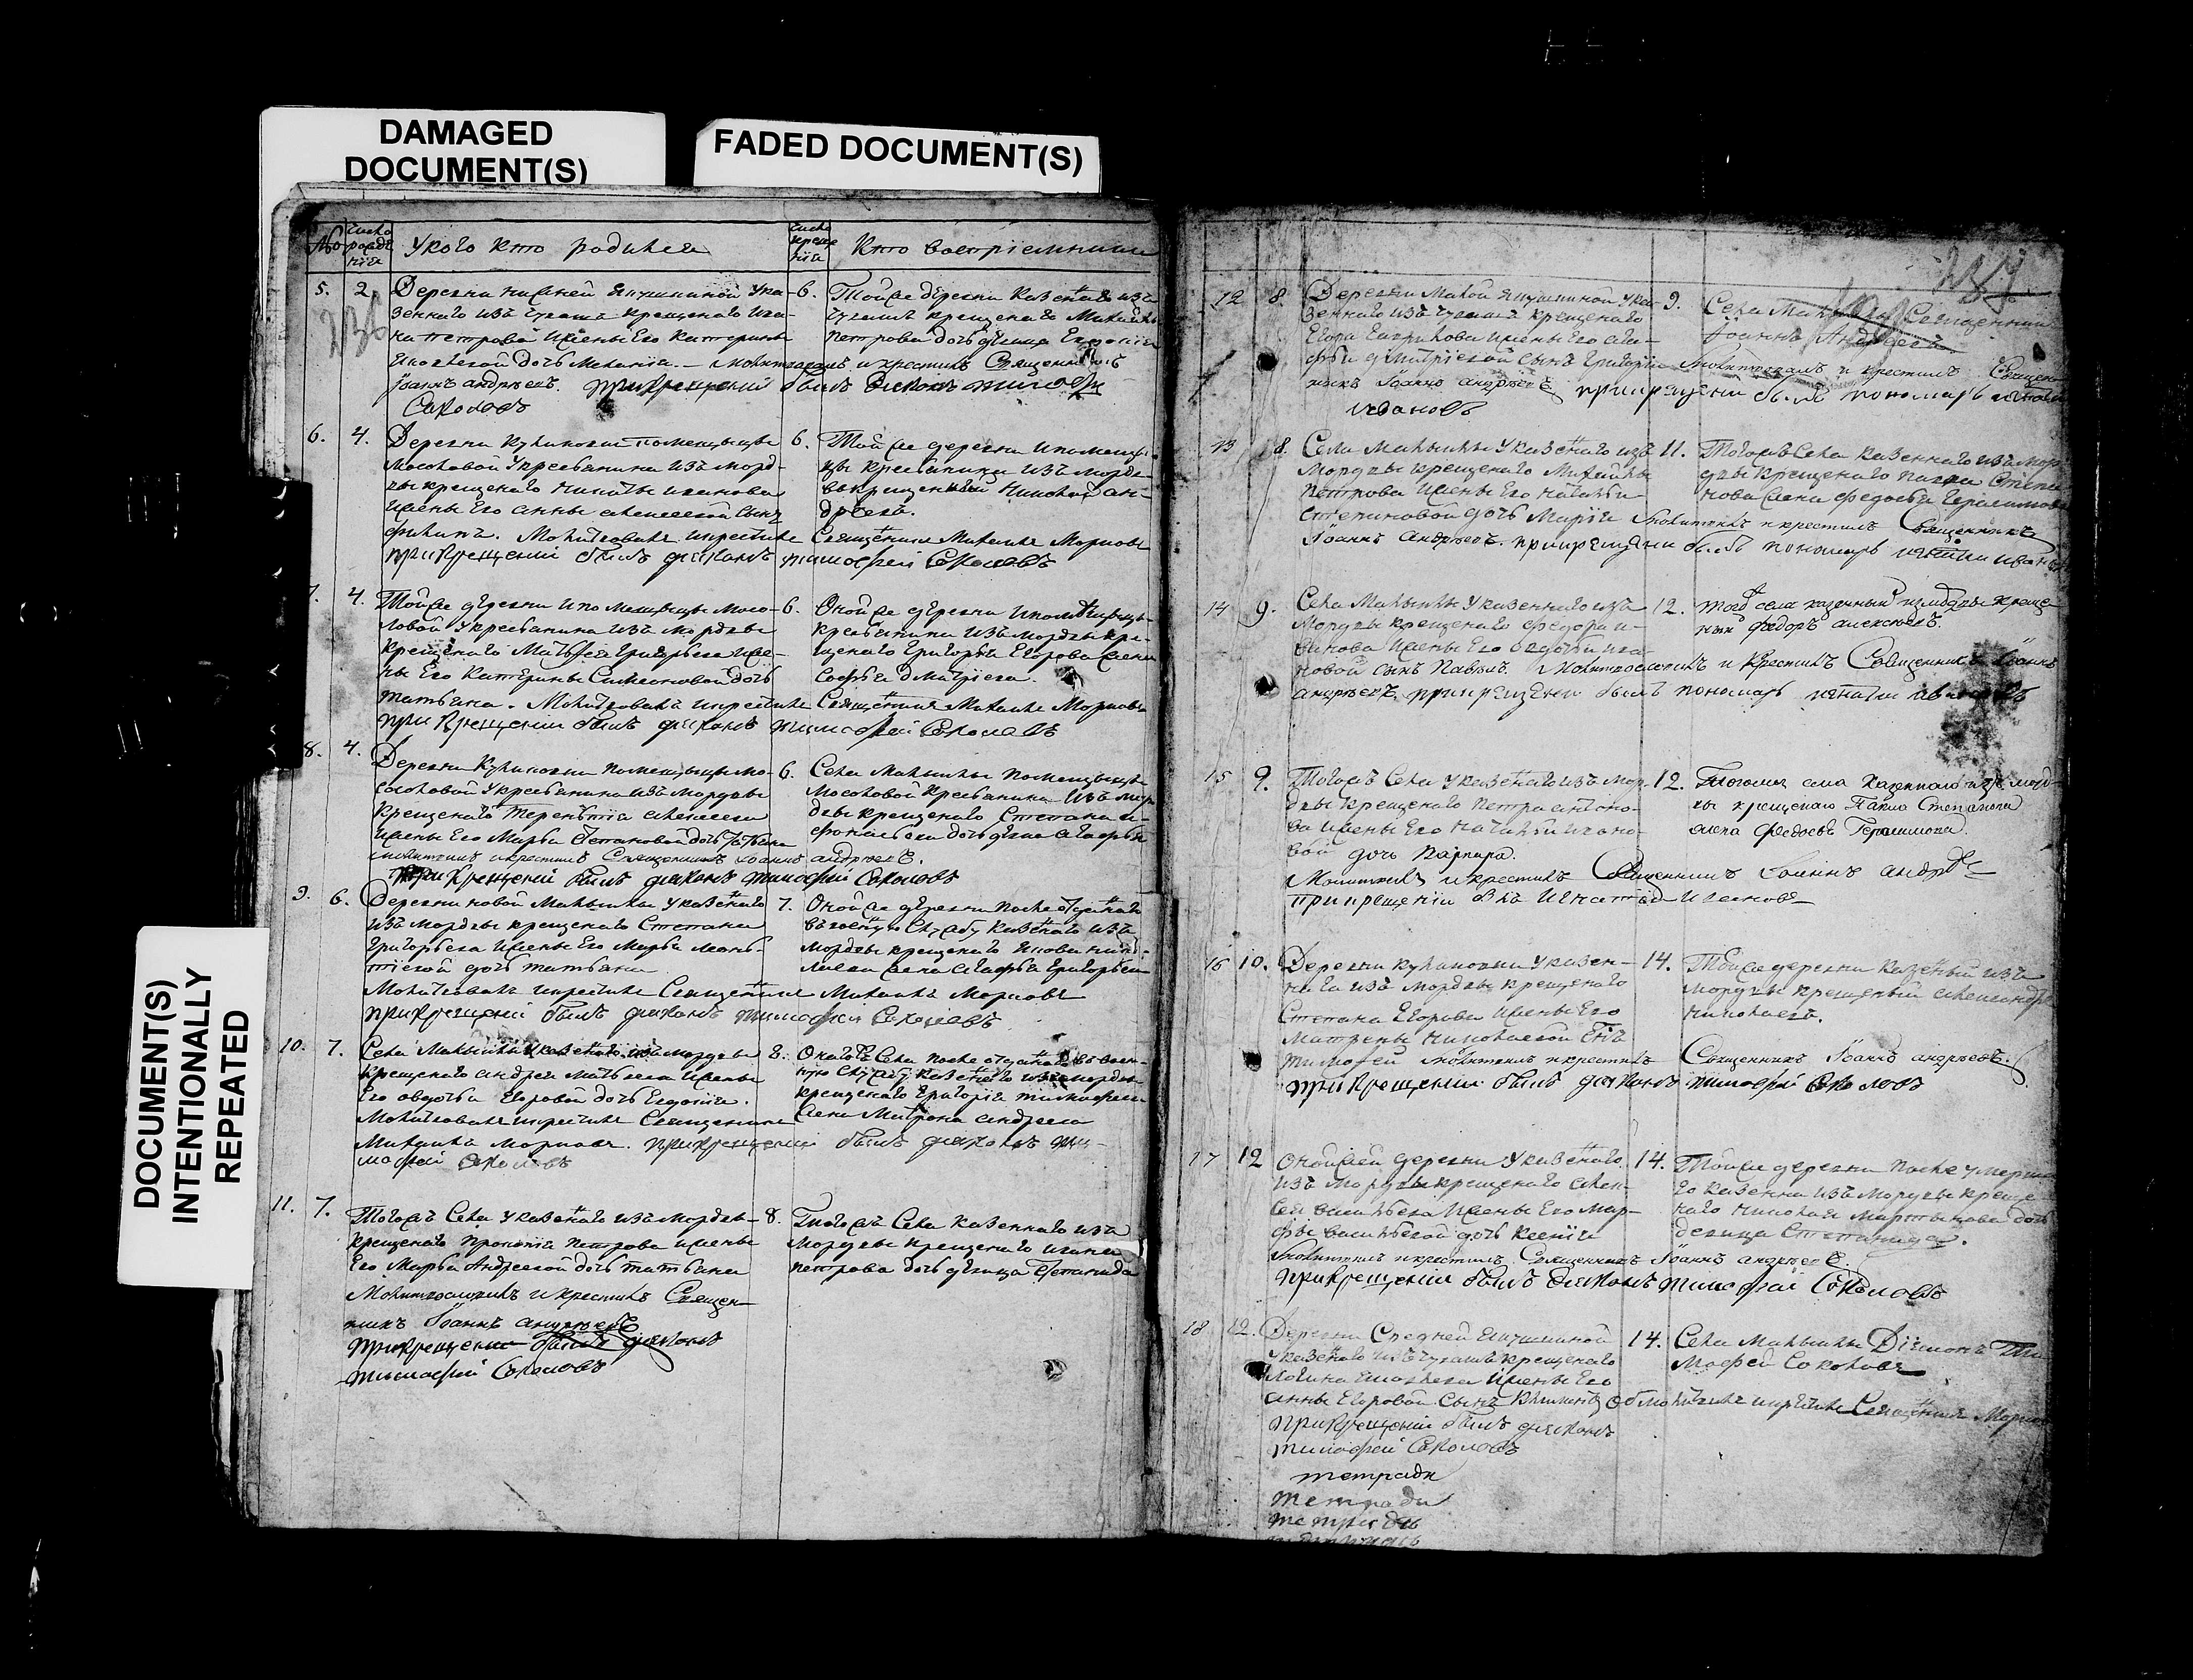 DAMAGED
DOCUMENT(S)
FADED DOCUMENT(S)
DOCUMENT(S)
INTENTIONALLY
REPEATED
№
числа
рожде
нія
У кого кто родился
числа
креще
нія
Кто воспріемники
5. 2.
236
Деревни Нижней Якушкиной у ка-
зеннаго изъ чувашъ крещенаго Ива-
на Петрова жены Его Катерины
Яковлевой дочь Меланія. — Молитвовалъ и крестилъ Священникъ
Іоаннъ Андреевъ. При крещеніи былъ дьяконъ Тимофей
Соколовъ
6. Той же деревни казеннаго изъ
чувашъ крещенаго Михайлы
Петрова дочь девица Евдокія
6. 4.
Деревни Куликовки помещицы
Мосоловой у крестьянина изъ морд-
вы крещенаго Никиты Иванова
жены Его Анны Алексеевой сынъ
Филипъ. Молитвовалъ и крестилъ Священникъ МихаилъМорновъ
при крещеніи былъ дьяконъ Тимофей Соколовъ
6. Той же деревни и помещи-
цы крестьянинъ изъ мордвы
крещенный Николай Ан-
дреевъ.
7. 4.
Той же деревни и помещицы Мосо-
ловой у крестьянина изъ мордвы
крещенаго Матвея Григорьева же-
ны Его Катерины Симеоновой дочь
Татьяна. Молитвовалъ и крестилъ Священникъ Михаилъ Морновъ
при крещеніи былъ дьяконъ Тимофей Соколовъ
6. Оной же деревни и помещицы
крестьянина изъ мордвы кре-
щенаго Григорья Егорова жена
Софья Дмитріева.
8. 4.
Деревни Куликовки помещицы Мо-
сололовой у крестьянина изъ мордвы
крещенаго Терентія Алексеева
жены Его Марьи Степановой дочь
молитвилъ и крестилъ Священникъ Іоаннъ Андреевъ.
При крещеніи былъ дьяконъ Тимофей Соколовъ
6. Села Малыклы помещицы
Мосоловой крестьянина изъ мор-
двы крещенаго Степана А-
фонасьева дочь девка Агафья
9. 6.
Деревни новой Малыклы у казеннаго
изъ мордвы крещенаго Степана
Григорьева жены Его Марьи Леонь-
тіевой дочь Татьяна
Молитвовалъ и крестилъ Священникъ Михаилъ Морновъ
при крещеніи былъ дьяконъ Тимофей Соколовъ
7. Оной же деревни после отданнаго
въ военную службу казеннаго изъ
мордвы крещенаго Якова
жена Агафья Григорьева
10. 7.
Села Малыклы у казеннаго изъ мордвы
крещенаго Андрея Матвеева жены
Его Авдотьи Егоровой дочь Евдокія.
Молитвовалъ и крестилъ Священникъ
Михаилъ Морновъ. При крещеніи былъ дьяконъ Ти-
мофей Соколовъ
8. Онагожъ Села после отданнаго въ воен-
ную службу казеннаго изъ мордвы
крещенаго Григорія Тимофеева
жена Матрона Андреева
11. 7.
Тогожъ Села у казеннаго изъ мордвы
крещенаго Прокопія Петрова жены
Его Марьи Андреевой дочь Татьяна
Молитвословилъ и крестилъ Священ-
никъ Іоаннъ Андреевъ
При крещеніи былъ дьяконъ
Тимофей Соколовъ
8. Тогожъ Села казеннаго изъ
мордвы крещенаго Ивана
Петрова дочь девица Степанида
12 8.
Деревни Малой Якушкиной у ка-
зеннаго изъ чувашъ крещенаго
Егора Гаврилова жены Его Ага-
фьи Дмитріевой сынъ Григорій Молитвовалъ и крестилъ Священ-
никъ Іоаннъ Андреевъ при крещеніи былъ пономарь
Ивановъ
9. Села Священникъ
Іоаннъ Андреевъ
13 8.
Села Малыклы у казеннаго изъ
мордвы крещенаго Михайлы
Петрова жены Его Натальи
Степановой дочь Марія Молитвилъ и крестилъ Священникъ
Іоаннъ Андреевъ. при крещеніи былъ пономарь Игнатій Ивановъ
11. Тогожъ Села казеннаго изъ мор-
двы крещенаго Павла Степа
нова жена Федосья Герасимова
14 9.
Села Малыклы у казеннаго изъ
мордвы крещенаго Федора И-
ванова жены Его Авдотьи Ива-
новой сынъ Павелъ. Молитвословилъ и крестилъ Священникъ Іоаннъ
Андреевъ. при крещеніи былъ пономарь Игнатій Ивановъ
12. того села казенный изъ мордвы креще
ный Федоръ Алексеевъ.
15 9.
Тогожъ Села у казеннаго изъ мор-
двы крещенаго Петра Антоно-
ва жены Его Натальи Ивано-
вой дочь
Молитвилъ и крестилъ Священникъ Іоаннъ Андреевъ
При крещеніи былъ Игнатій Ивановъ
12. Тогожъ села казеннаго изъ морд-
вы крещенаго Павла Степанова
жена Федосья Герасимова.
16 10.
Деревни Куликовки у казен-
наго изъ мордвы крещенаго
Степана Егорова жены Его
Матрены Николаевой сынъ
Тимофей Молитвилъ и крестилъ Священникъ Іоаннъ Андреевъ.
При крещеніи былъ дьяконъ Тимофей Соколовъ
14. Той же деревни казенный изъ
мордвы крещеный Александръ
Николаевъ.
17 12
Оной же деревни у казеннаго
изъ мордвы крещенаго Алек-
сея Васильева жены Его Мар-
фы Васильевой дочь Ксенія
Молитвилъ и крестилъ Священникъ Іоаннъ Андреевъ.
При крещеніи былъ дьяконъ Тимофей Соколовъ
14. Той же деревни после умерша-
го казенна изъ мордвы креще-
наго Николая Мартынова дочь
девица Степанида.
18 12.
Деревни Средней Якушкиной
у казеннаго изъ чувашъ крещенаго
Логина Яковлева жены Его
Анны Егоровой сынъ Климентъ молитвилъ и крестилъ Священникъ Морновъ
При крещеніи былъ дьяконъ
Тимофей Соколовъ
14. Села Малыклы Діяконъ Ти
мофей Соколовъ
тетради
тетради
тетрадь